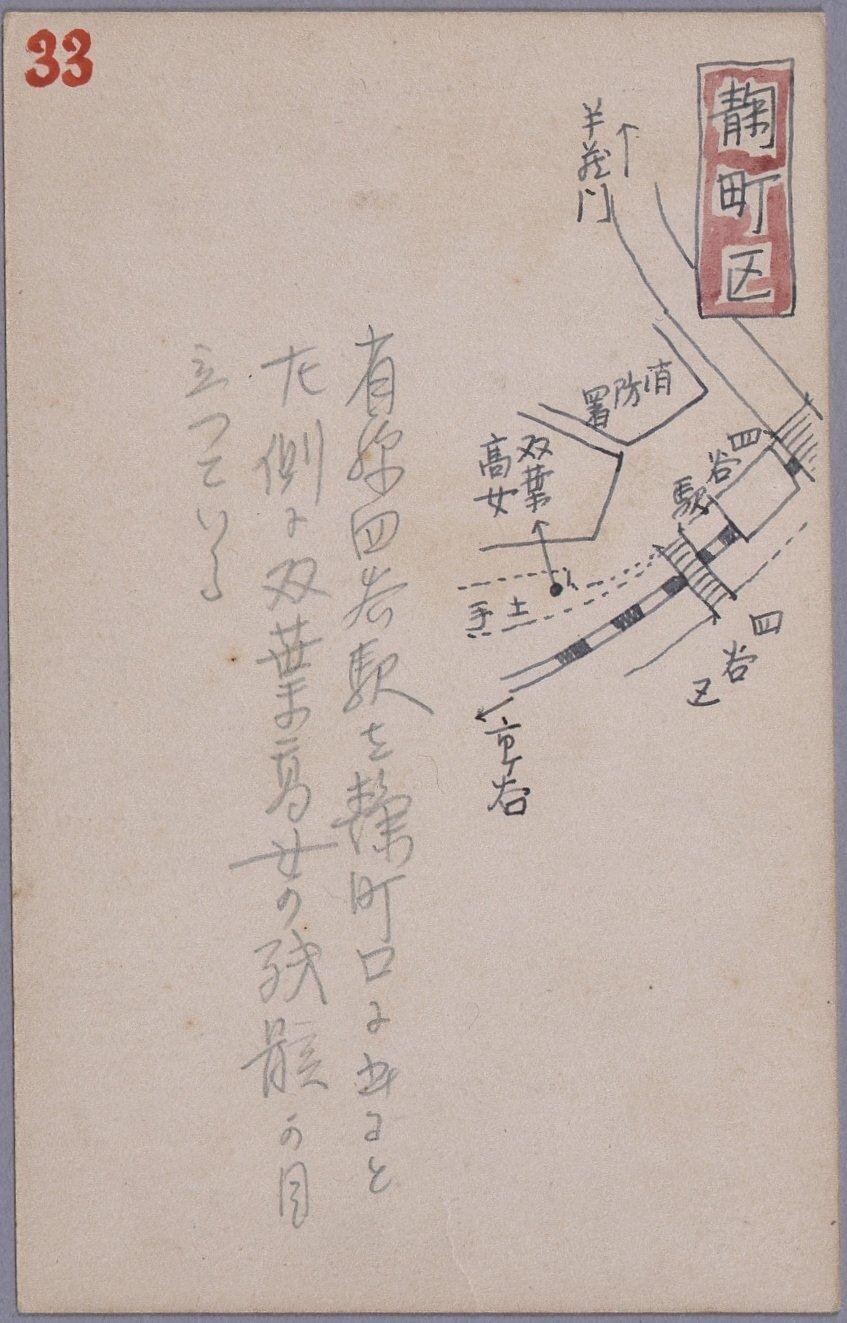 33
麹町区
半蔵門
消防署
双葉
高女
四谷駅
土手
四谷区
市ヶ谷
省線四谷駅を麹町口に出ると
左側に双葉高女の残骸が目
立つている